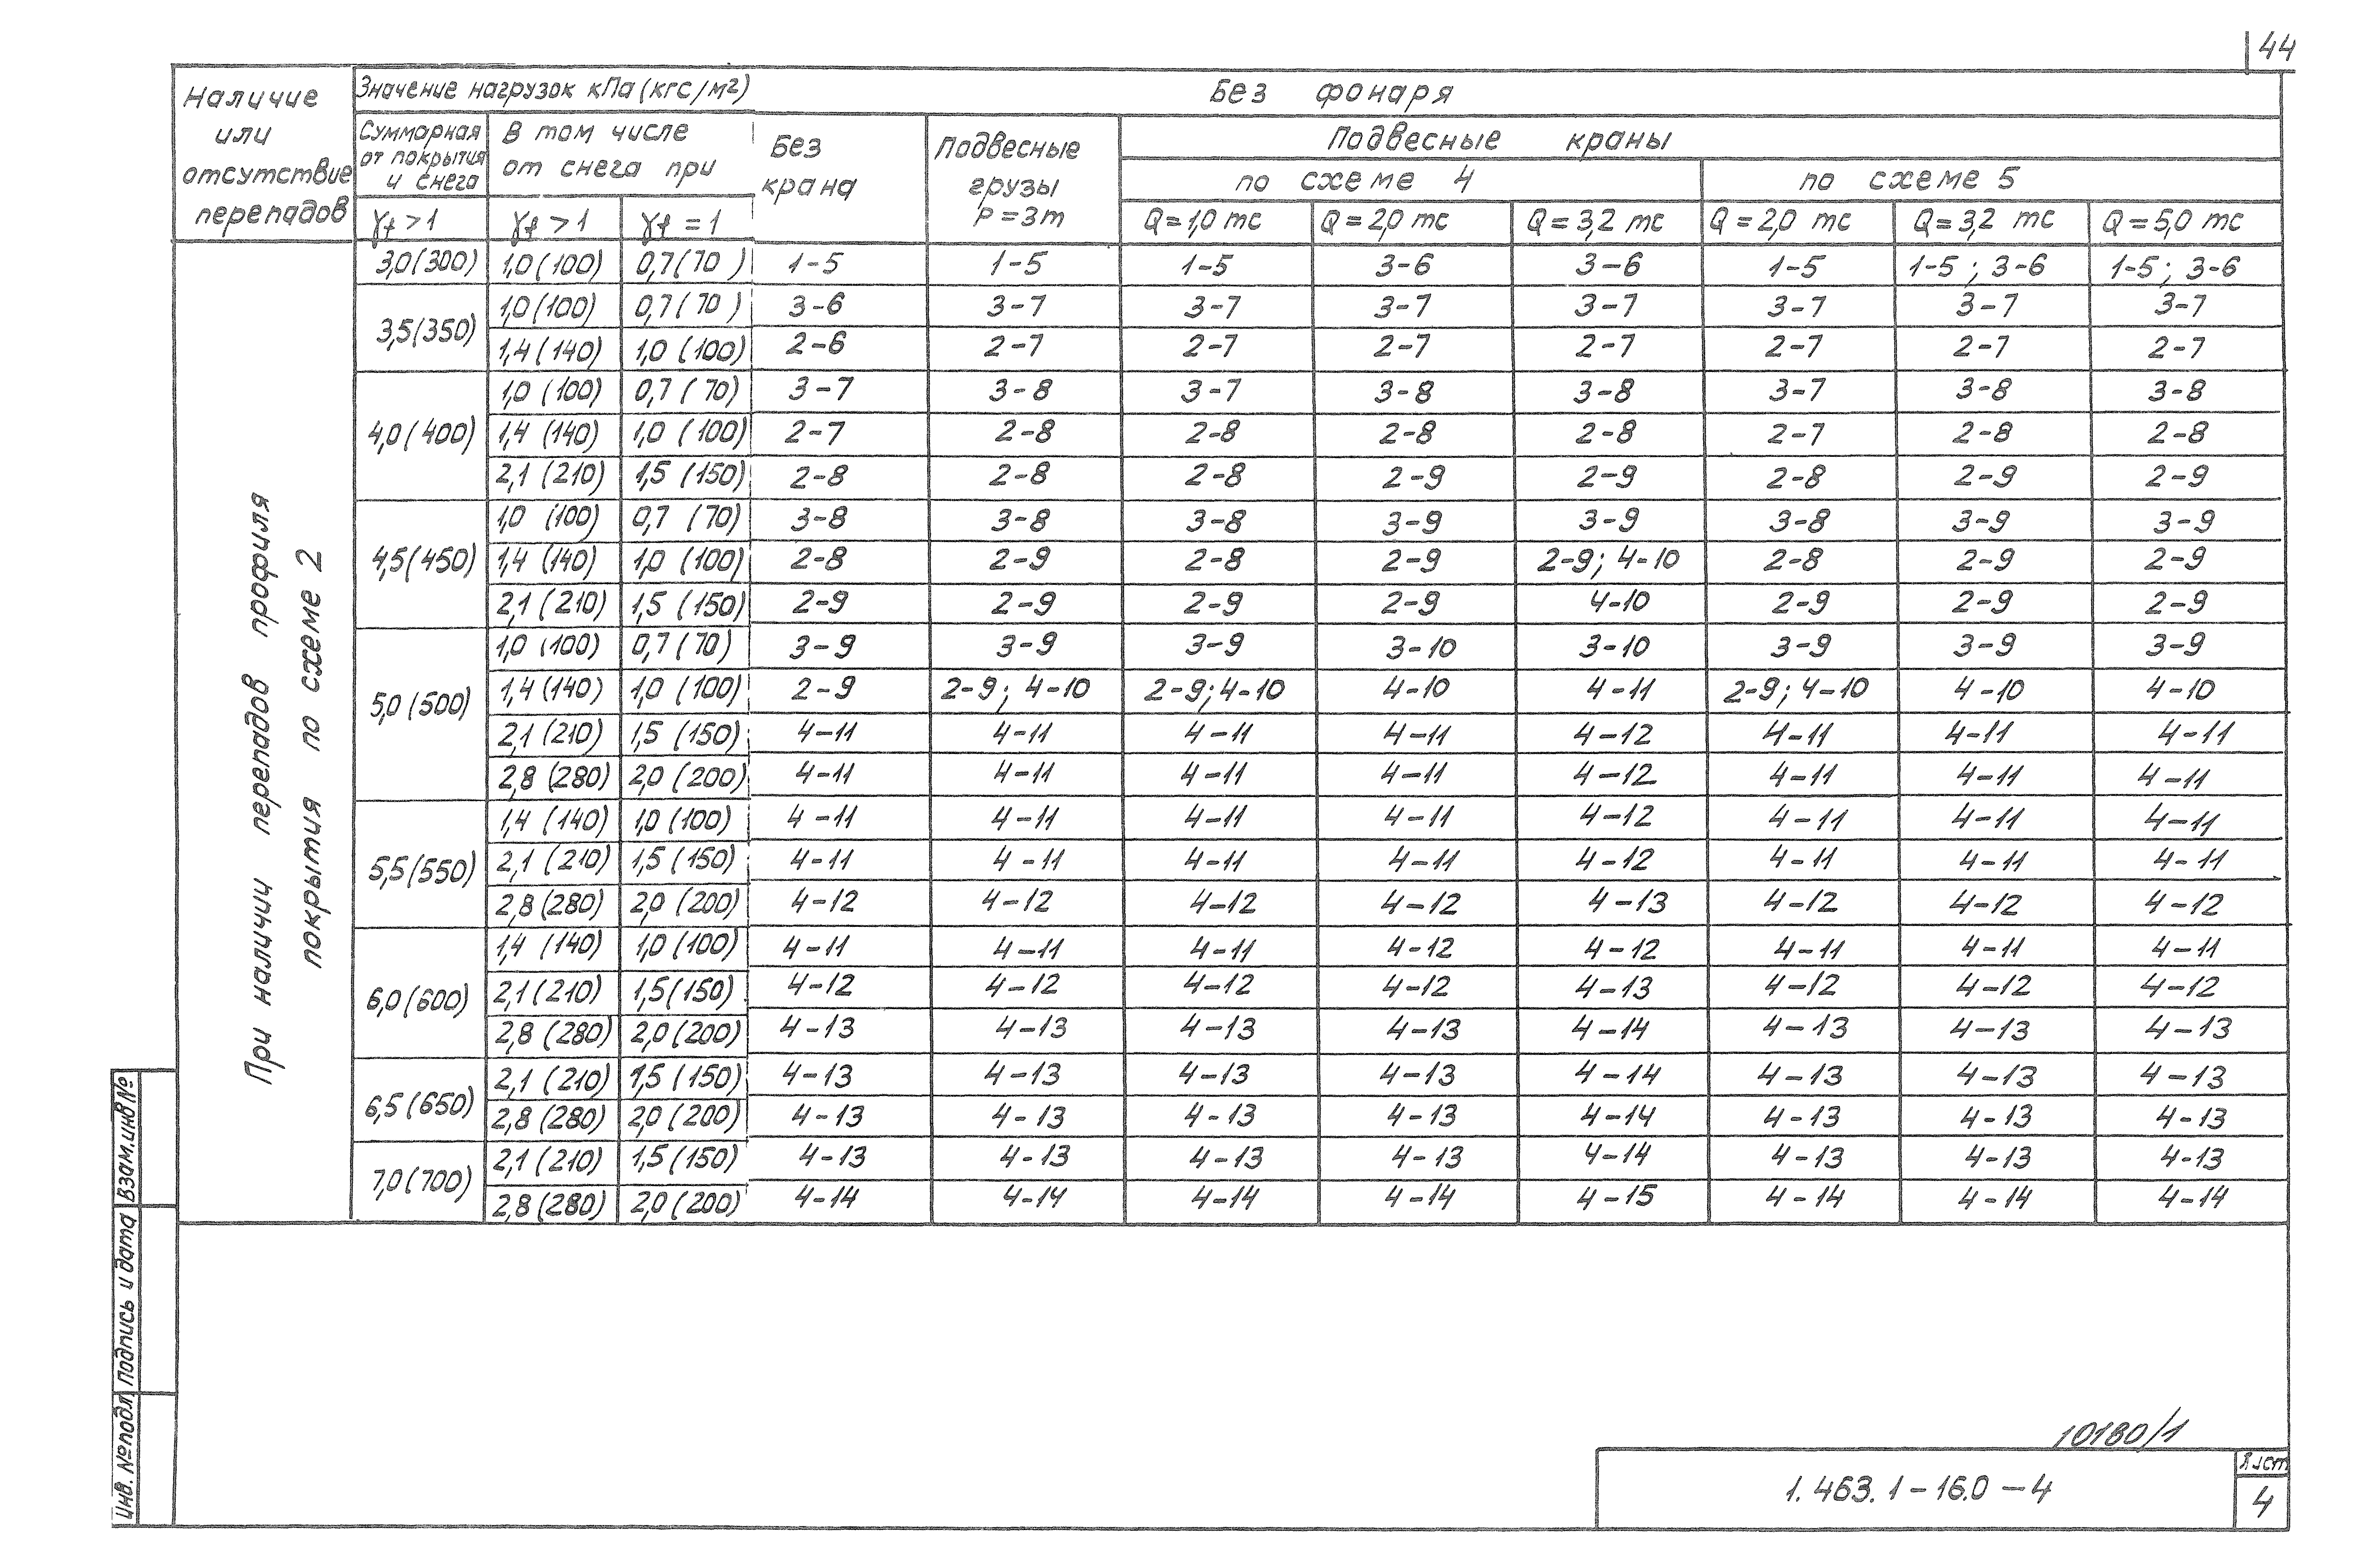 44
Наличие или отсутствие перепадов
Значение нагрузок кПа (кгс/м²)
Без фонаря
Суммарная от покрытия и снега
В том числе от снега при
Без крана
Подвесные грузы P = 3т
Подвесные краны
по схеме 4
по схеме 5
γf > 1 γf > 1 γf = 1 Q = 1,0 тс Q = 2,0 тс Q = 3,2 тс Q = 2,0 тс Q = 3,2 тс Q = 5,0 тс
При наличии перепадов профиля
покрытия по схеме 2
3,0(300) 1,0(100) 0,7(70) 1-5 1-5 1-5 3-6 3-6 1-5 1-5; 3-6 1-5; 3-6
3,5(350) 1,0(100) 0,7(70) 3-6 3-7 3-7 3-7 3-7 3-7 3-7 3-7
1,4(140) 1,0(100) 2-6 2-7 2-7 2-7 2-7 2-7 2-7 2-7
4,0(400) 1,0(100) 0,7(70) 3-7 3-8 3-7 3-8 3-8 3-7 3-8 3-8
1,4(140) 1,0(100) 2-7 2-8 2-8 2-8 2-8 2-7 2-8 2-8
2,1(210) 1,5(150) 2-8 2-8 2-8 2-9 2-9 2-8 2-9 2-9
4,5(450) 1,0(100) 0,7(70) 3-8 3-8 3-8 3-9 3-9 3-8 3-9 3-9
1,4(140) 1,0(100) 2-8 2-9 2-8 2-9 2-9; 4-10 2-8 2-9 2-9
2,1(210) 1,5(150) 2-9 2-9 2-9 2-9 4-10 2-9 2-9 2-9
5,0(500) 1,0(100) 0,7(70) 3-9 3-9 3-9 3-10 3-10 3-9 3-9 3-9
1,4(140) 1,0(100) 2-9 2-9; 4-10 2-9; 4-10 4-10 4-11 2-9; 4-10 4-10 4-10
2,1(210) 1,5(150) 4-11 4-11 4-11 4-11 4-12 4-11 4-11 4-11
2,8(280) 2,0(200) 4-11 4-11 4-11 4-11 4-12 4-11 4-11 4-11
5,5(550) 1,4(140) 1,0(100) 4-11 4-11 4-11 4-11 4-12 4-11 4-11 4-11
2,1(210) 1,5(150) 4-11 4-11 4-11 4-11 4-12 4-11 4-11 4-11
2,8(280) 2,0(200) 4-12 4-12 4-12 4-12 4-13 4-12 4-12 4-12
6,0(600) 1,4(140) 1,0(100) 4-11 4-11 4-11 4-12 4-12 4-11 4-11 4-11
2,1(210) 1,5(150) 4-12 4-12 4-12 4-12 4-13 4-12 4-12 4-12
2,8(280) 2,0(200) 4-13 4-13 4-13 4-13 4-14 4-13 4-13 4-13
6,5(650) 2,1(210) 1,5(150) 4-13 4-13 4-13 4-13 4-14 4-13 4-13 4-13
2,8(280) 2,0(200) 4-13 4-13 4-13 4-13 4-14 4-13 4-13 4-13
7,0(700) 2,1(210) 1,5(150) 4-13 4-13 4-13 4-13 4-14 4-13 4-13 4-13
2,8(280) 2,0(200) 4-14 4-14 4-14 4-14 4-15 4-14 4-14 4-14
Инв. № подл. Подпись и дата Взам. инв №
10180/1
1.463.1-16.0-4
Лист
4